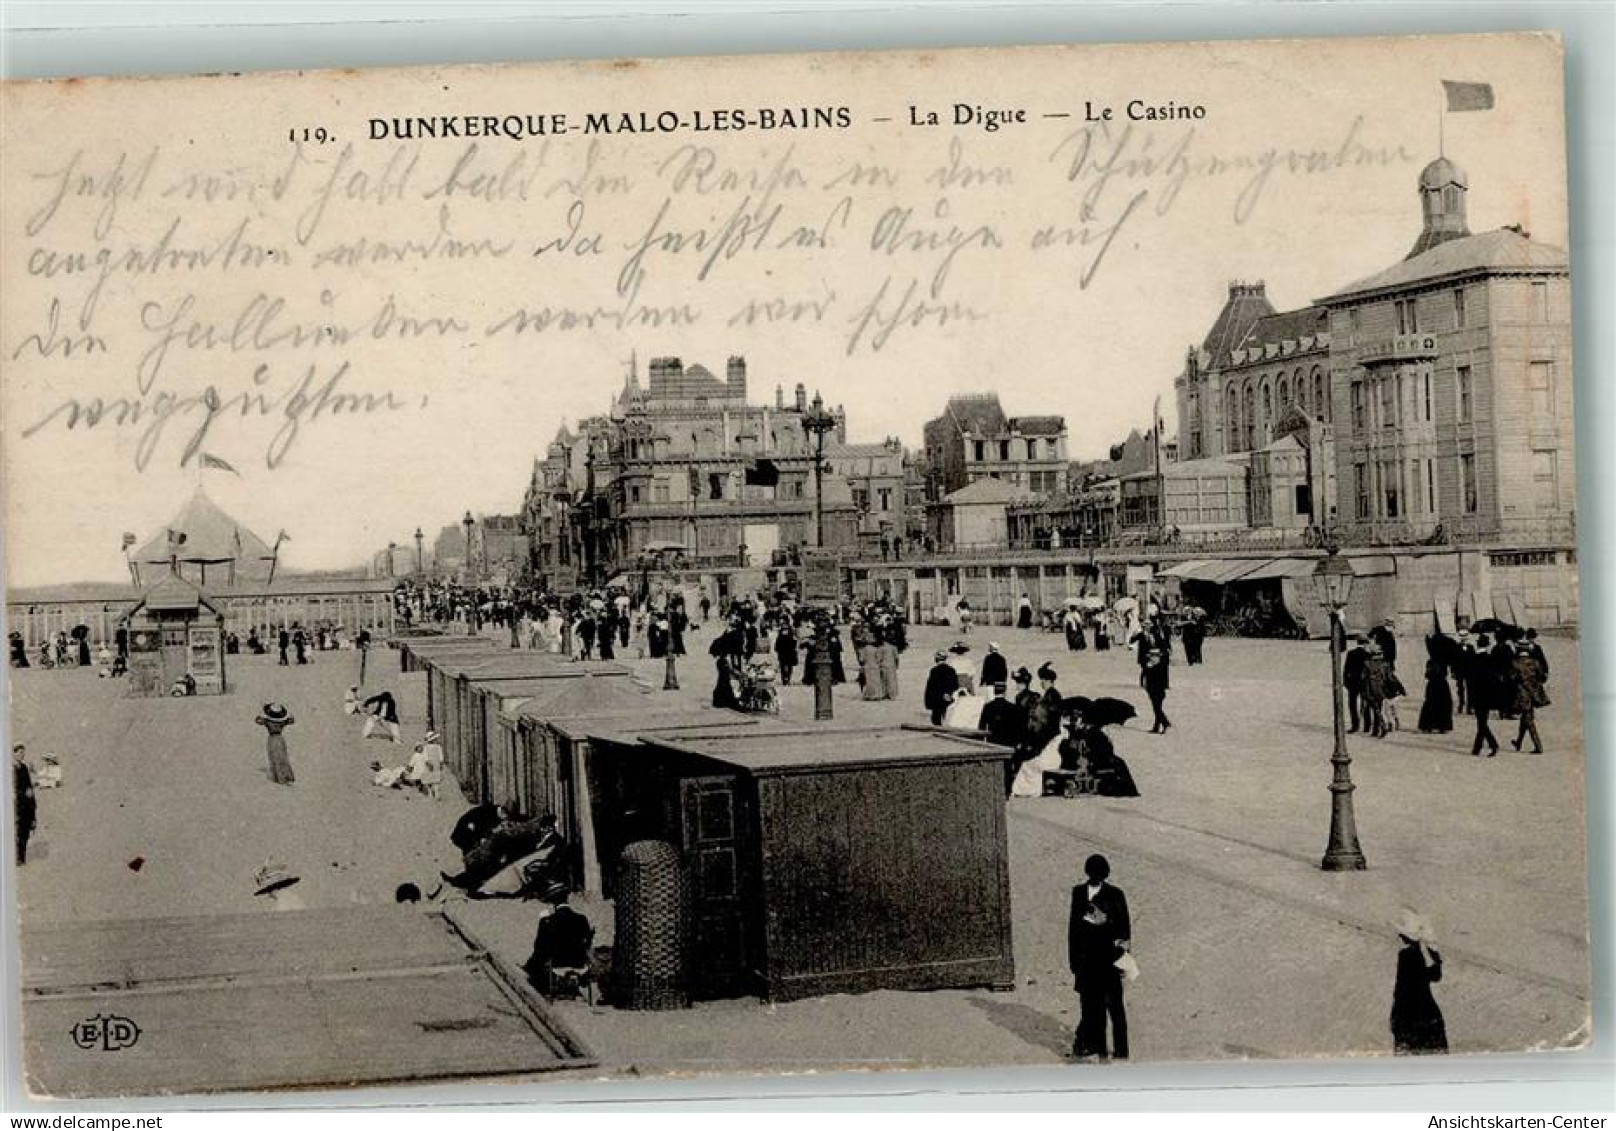 119. DUNKERQUE-MALO-LES-BAINS — La Digue — Le Casino
Jetzt wird halt bald die Reise in den Schützengraben
angetreten werden da heißt es Auge auf.
Die Hallunken werden wir schon
wegputzen.
E.L.D
Ansichtskarten-Center